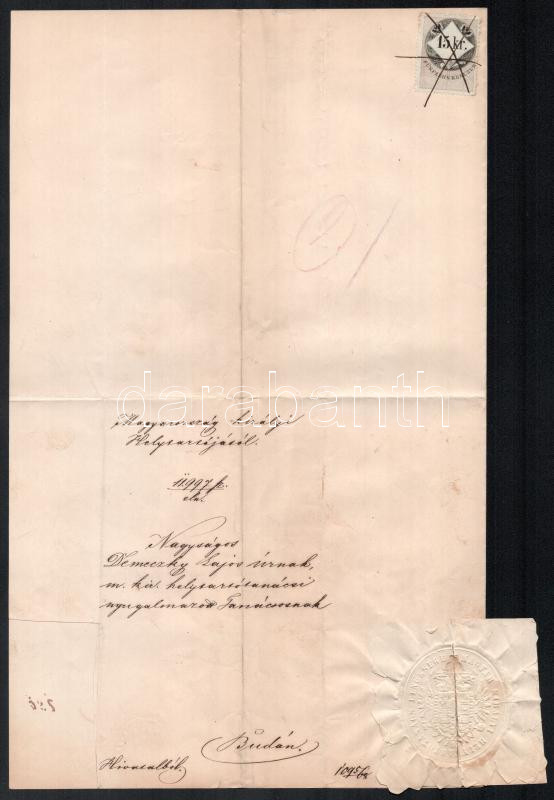 15 kr.
2
darabanth
Magyarország királyi
Helytartójától.
11997
eln.
Nagyságos
Demeczky Lajos úrnak,
m. kir. helytartótanácsi
nyugalmazott Tanácsosnak
Budán.
Hivatalból.